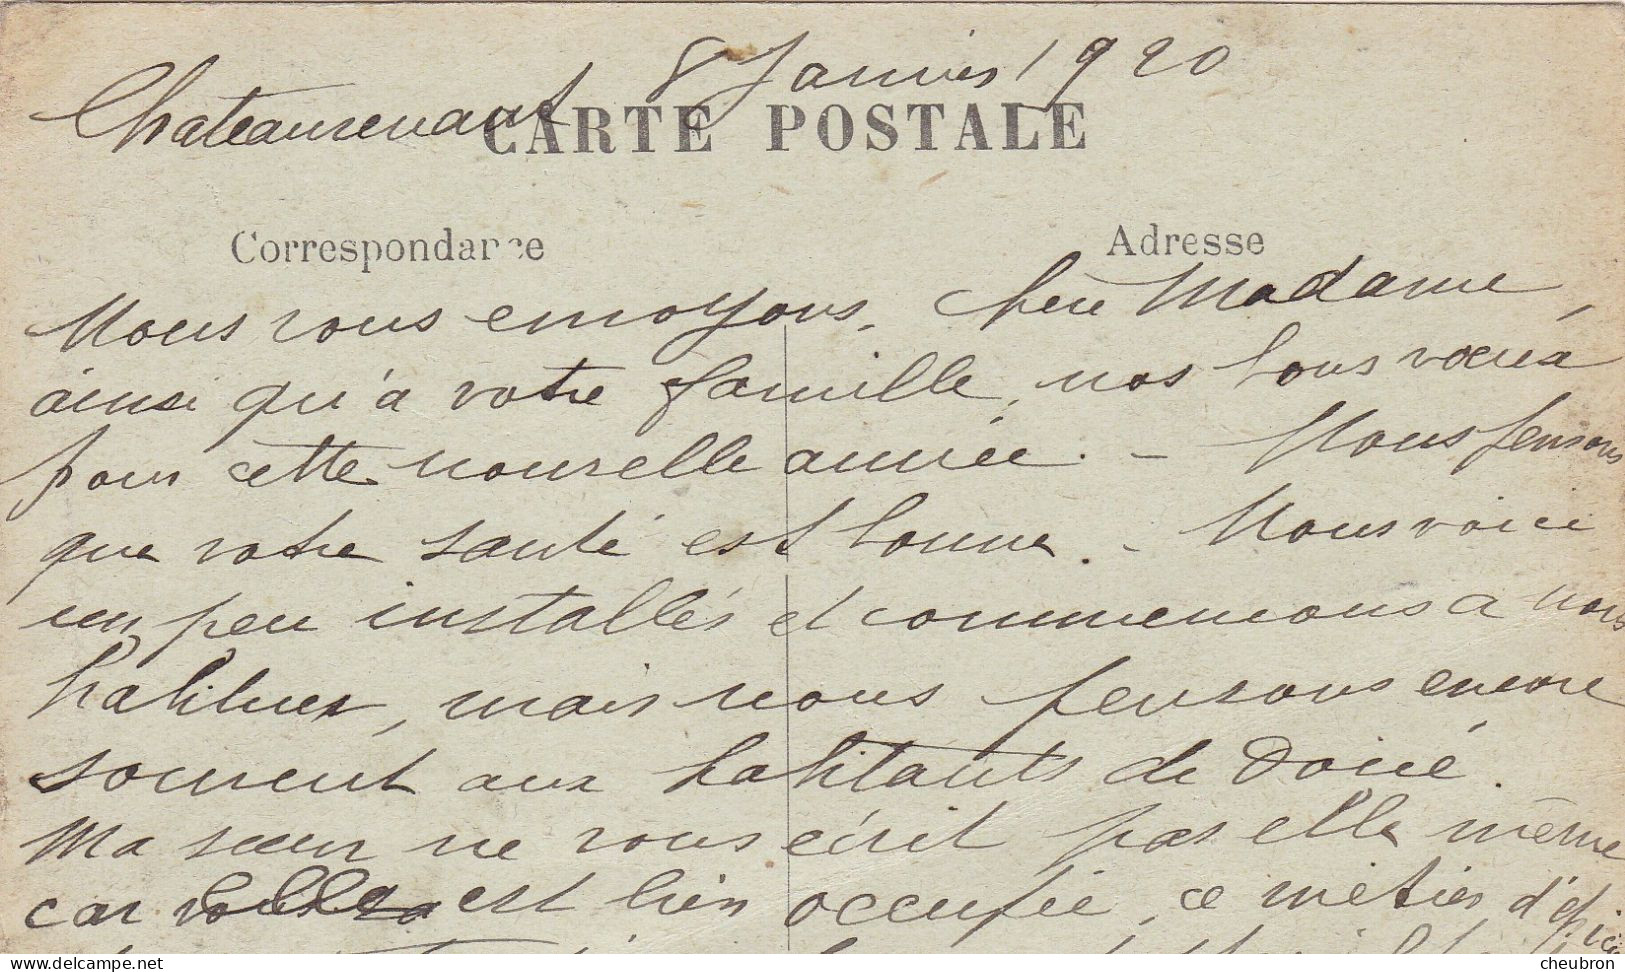 Chateaurenard 8 Janvier 1920
CARTE POSTALE
Correspondance
Adresse
Nous vous envoyons, chère Madame,
ainsi qu'à votre famille, nos bons vœux
pour cette nouvelle année. – Nous pensons
que votre santé est bonne. – Nous voici
un peu installés et commencons a nous
habituer, mais nous pensons encore
souvent aux habitants de Doué.
Ma sœur ne vous écrit pas elle même
car est bien occupée, ce métier d'épici
cheubron
delcampe.net